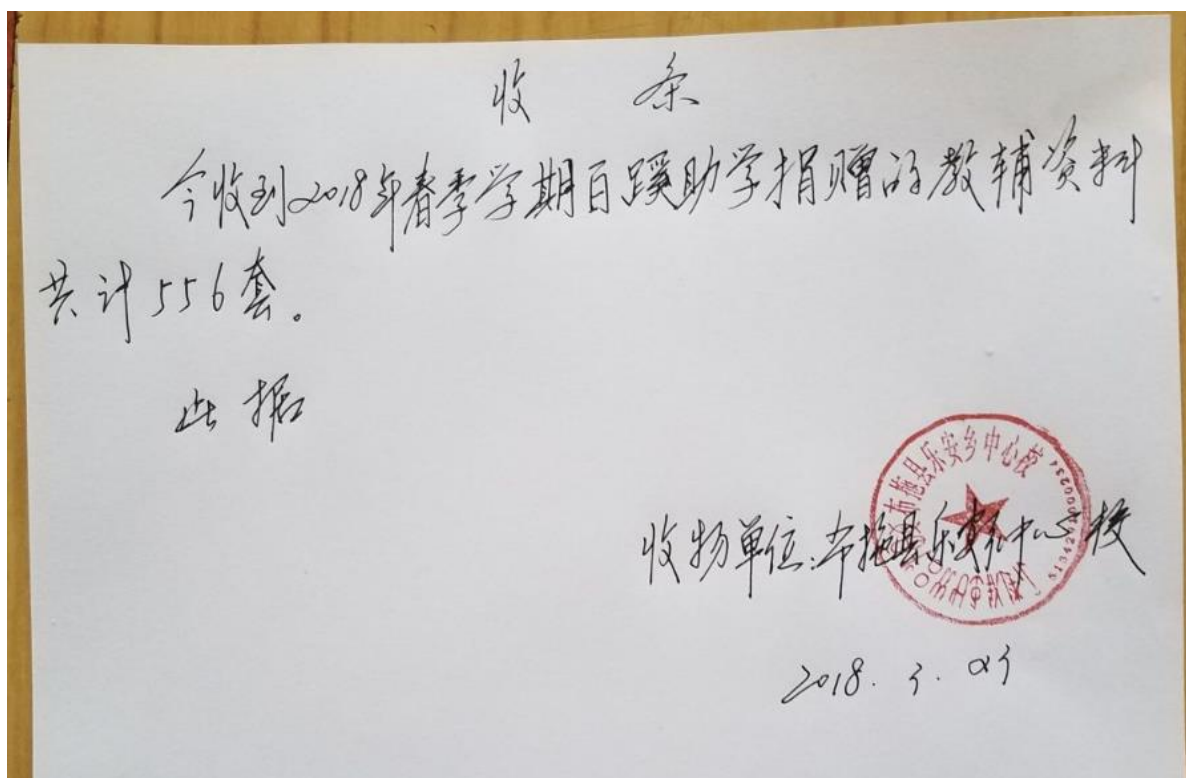 收 条
今收到2018年春季学期百蹊助学捐赠的教辅资料
共计556套。
此据
布拖县乐安乡中心校
收物单位:布拖县乐安乡中心校
2018.3.